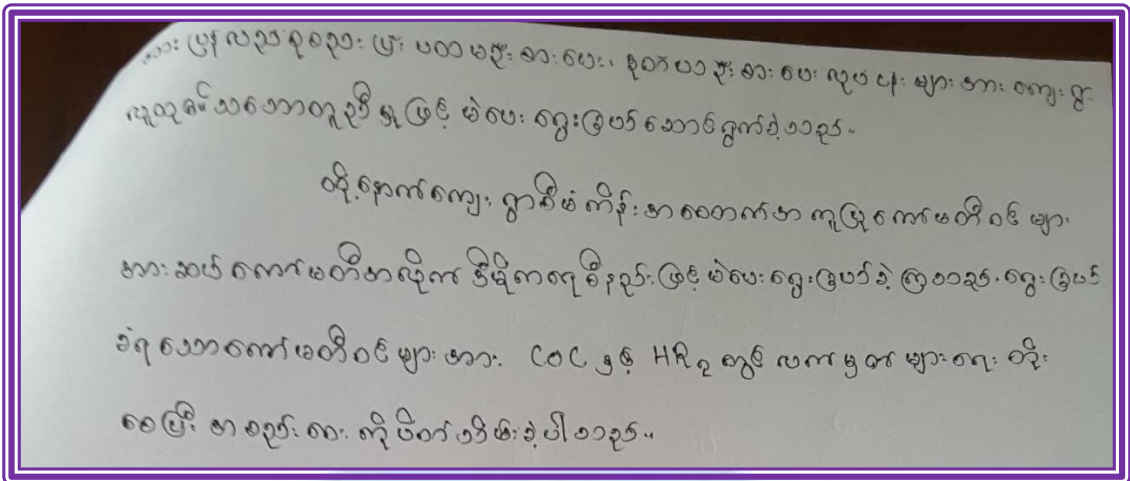 အား ပြန်လည်စုစည်းပြီး ပထမဦးစားပေး၊ ဒုတိယဦးစားပေး လုပ်ငန်းများအား ကျေးရွာ
လူထု၏ သဘောတူညီမှုဖြင့် မဲပေးရွေးချယ်ဆောင်ရွက်ခဲ့သည်။
ထို့နောက်ကျေးရွာစီမံကိန်းအထောက်အကူပြုကော်မတီဝင်များ
အား ဆယ်ကော်မတီအလိုက် ဒီမိုကရေစီနည်းဖြင့် မဲပေးရွေးချယ်ခဲ့ကြသည်. ရွေးချယ်
ခံရသောကော်မတီဝင်များအား. COC နှင့် HR တွင် လက်မှတ်များရေးထိုး
စေပြီး အစည်းဝေးကိုပိတ်သိမ်းခဲ့ပါသည်။